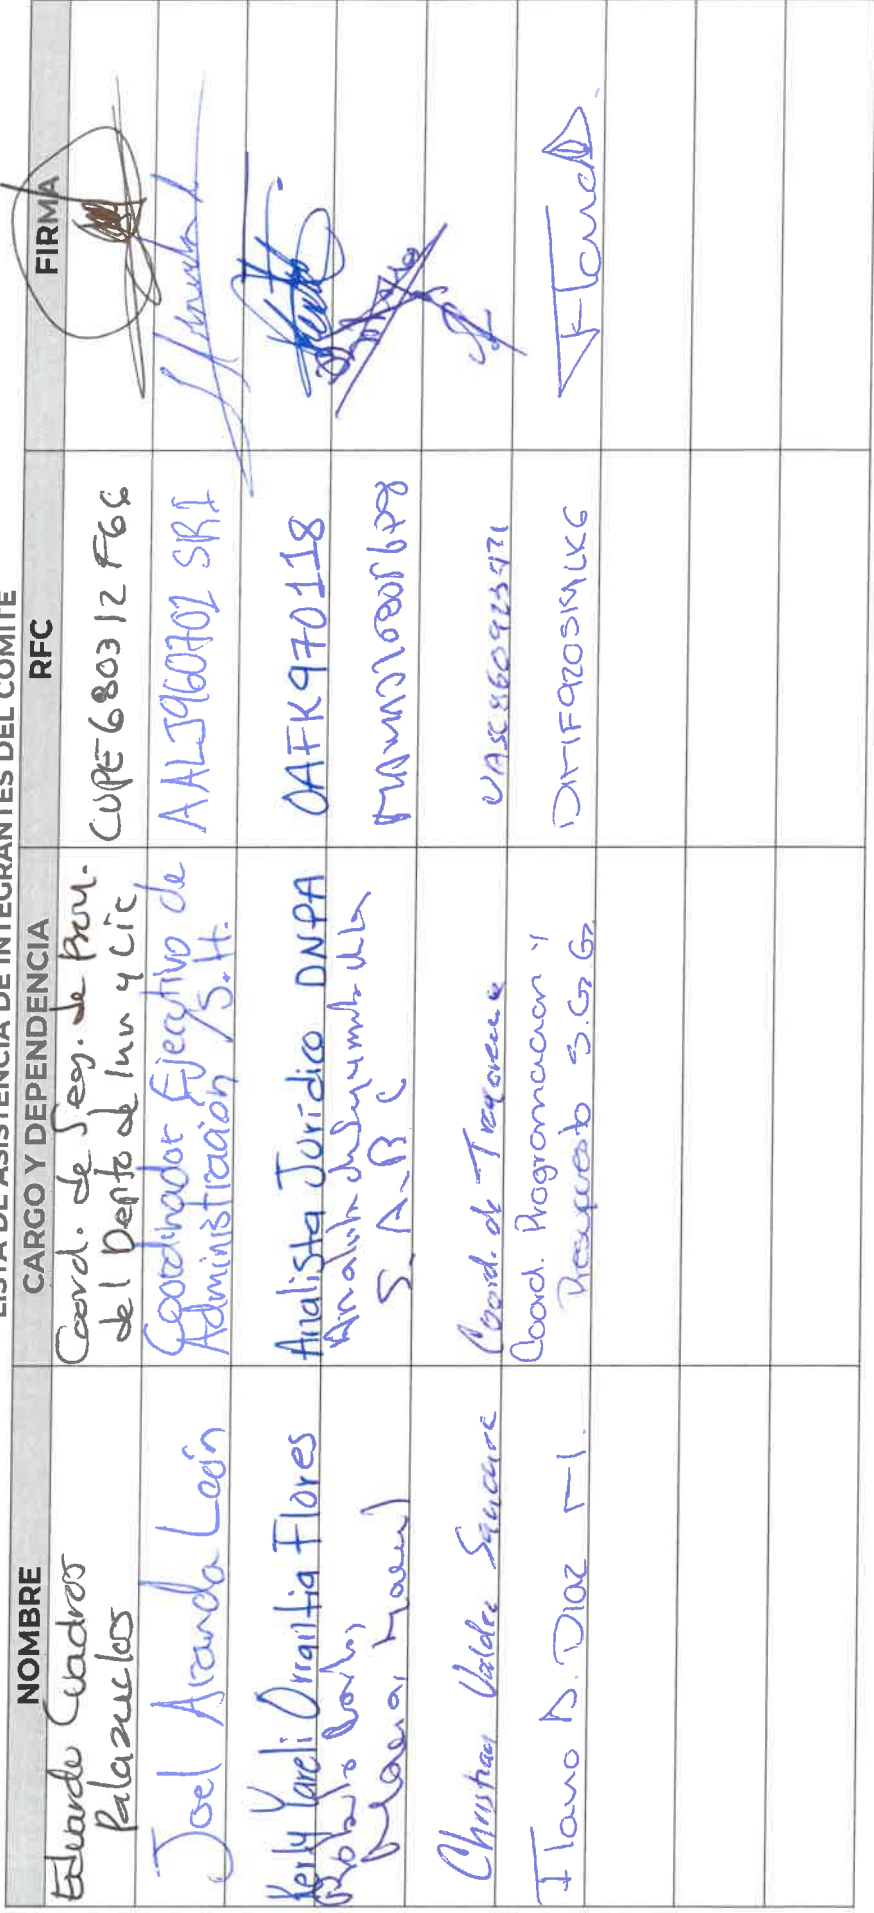 LISTA DE ASISTENCIA DE INTEGRANTES DEL COMITÉ
NOMBRE CARGO Y DEPENDENCIA RFC FIRMA
Eduardo Cuadros
Palazuelos
Coord. de Seg. de Prov.
del Depto de Inv y Lic
CUPE680312F66
Joel Aranda León
Coordinador Ejecutivo de
Administración /S.H.
AALJ960702 SR1
Kerly Yareli Orrantia Flores
Analista Jurídico DNPA
OAFK970118
Analista de Seguimiento de la
S.A.B.C
Christian Valdez
Coord. de
Flavio A. Diaz M.
Coord. Programacion y
Presupuesto S.G.G.
DIMF920519LK6